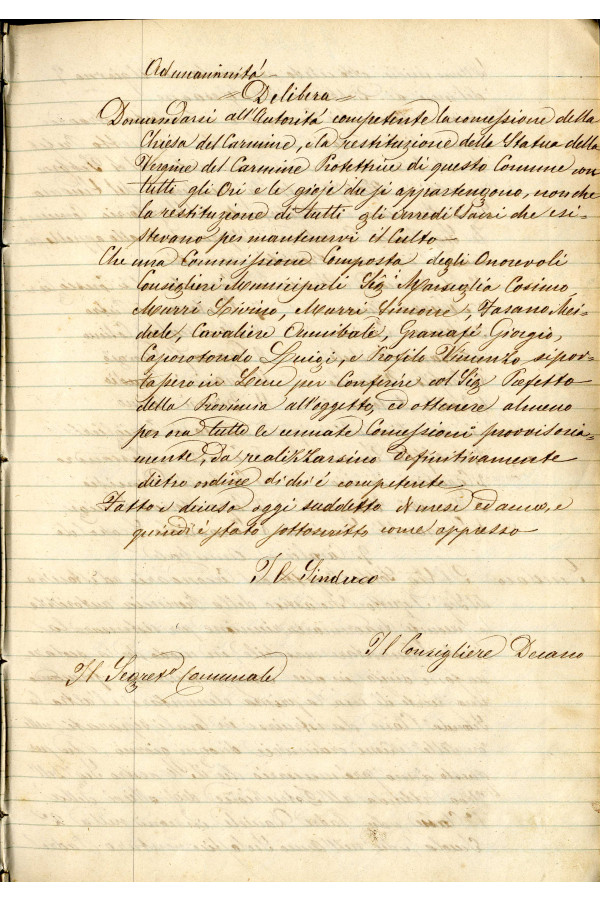 Ad unanimità
Delibera
Domandarsi all'Autorità competente la concessione della
Chiesa del Carmine, e la restituzione della Statua della
Vergine del Carmine Protettrice di questo Comune con
tutti gli Ori e le gioje che si appartengono, non che
la restituzione di tutti gli arredi Sacri che esi-
stevano per mantenervi il Culto
Che una Commissione Composta degli Onorevoli
Consiglieri Municipali Sigⁱ Marseglia Cosimo,
Murri Livino, Murri Simone, Fasano Mi-
chele, Cavaliere Annibale, Granafè Giorgio,
Caporotondo Luigi, e Profilo Vincenzo si por-
tassero in Lecce per Conferire col Sig Prefetto
della Provincia all'oggetto, ed ottenere almeno
per ora tutte le cennate Concessioni provvisoria-
mente, da realizzarsino definitivamente
dietro ordine di chi è competente
Fatto e deciso oggi suddetto dì mese ed anno, e
quindi è stato sottoscritto come appresso
Il Sindaco
Il Consigliere Decano
Il Segretº Comunale